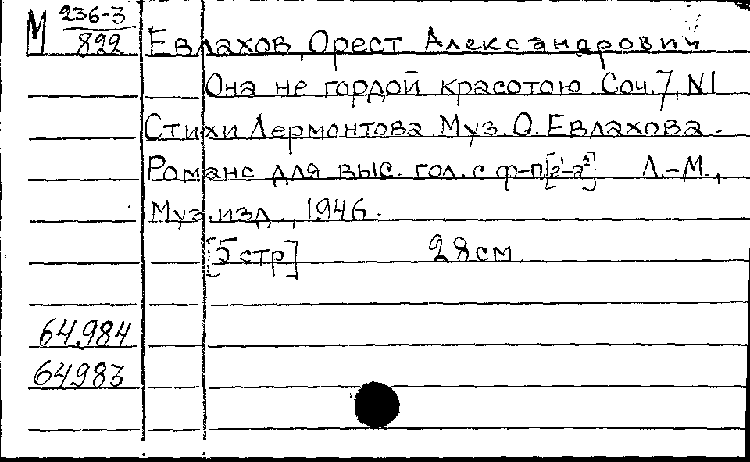 М 236-3
822
Евлахов, Орест Александрович
Она не гордой красотою. Соч. 7, N1
Стихи Лермонтова Муз. О. Евлахова.
Романс для выс. гол. с ф-п
Л.-М.,
Муз. изд., 1946.
[5 стр] 28 см
64984
64983